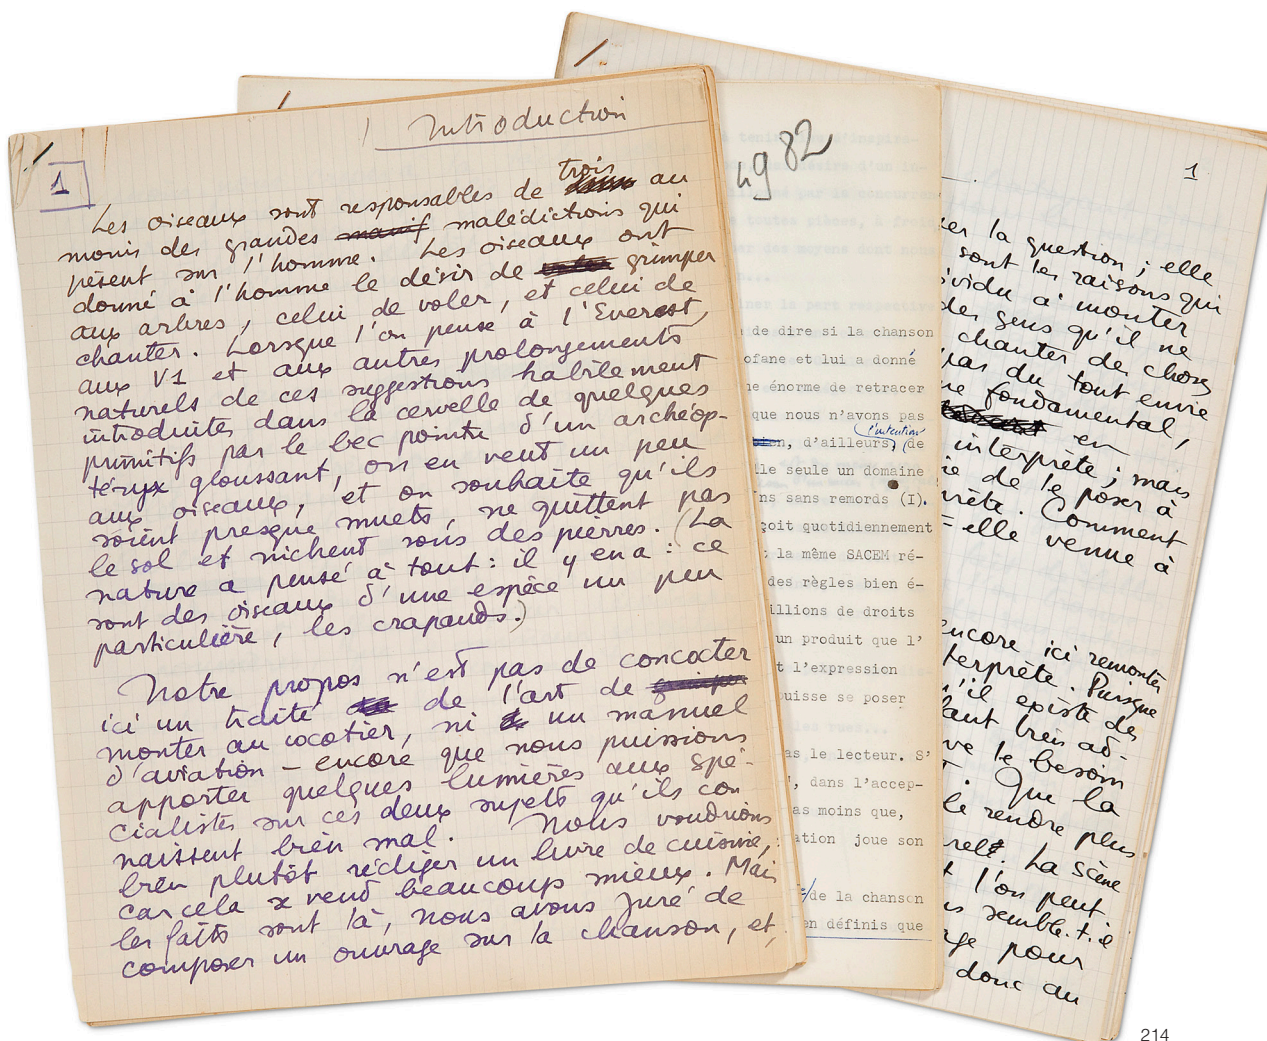 Introduction
1
Les oiseaux sont responsables de trois au
moins des grandes malédictions qui
pèsent sur l'homme. Les oiseaux ont
donné à l'homme le désir de grimper
aux arbres, celui de voler, et celui de
chanter. Lorsque l'on pense à l'Everest,
aux V1 et aux autres prolongements
naturels de ces suggestions habilement
introduites dans la cervelle de quelques
primitifs par le bec pointu d'un archéop-
téryx gloussant, on en veut un peu
aux oiseaux, et on souhaite qu'ils
soient presque muets, ne quittent pas
le sol et nichent sous des pierres. (La
nature a pensé à tout : il y en a : ce
sont des oiseaux d'une espèce un peu
particulière, les crapauds.)
Notre propos n'est pas de concocter
ici un traité de l'art de
monter au cocotier, ni un manuel
d'aviation - encore que nous puissions
apporter quelques lumières aux spé-
cialistes sur ces deux sujets qu'ils con
naissent bien mal. Nous voudrions
bien plutôt rédiger un livre de cuisine,
car cela se vend beaucoup mieux. Mais
les faits sont là, nous avons juré de
composer un ouvrage sur la chanson, et,
82
de dire si la chanson
ofane et lui a donné
ne énorme de retracer
que nous n'avons pas
l'intention
bien, d'ailleurs, (de
lle seule un domaine
ns sans remords (I).
çoit quotidiennement
la même SACEM ré-
des règles bien é-
illions de droits
un produit que l'
t l'expression
uisse se poser
as le lecteur. S'
, dans l'accep-
as moins que,
ation joue son
de la chanson
en définis que
1
er la question ; elle
sont les raisons qui
ividu à monter
des gens qu'il ne
chanter des choses
pas du tout envie
e fondamental,
en
interprète ; mais
ie de le poser à
rète. Comment
-elle venue à
encore ici remonter
terprète. Puisque
'il existe des
faut bien ad-
ve le besoin
. Que la
le rendre plus
rel. La scène
t l'on peut
s semble-t-il
ge pour
donc au
214